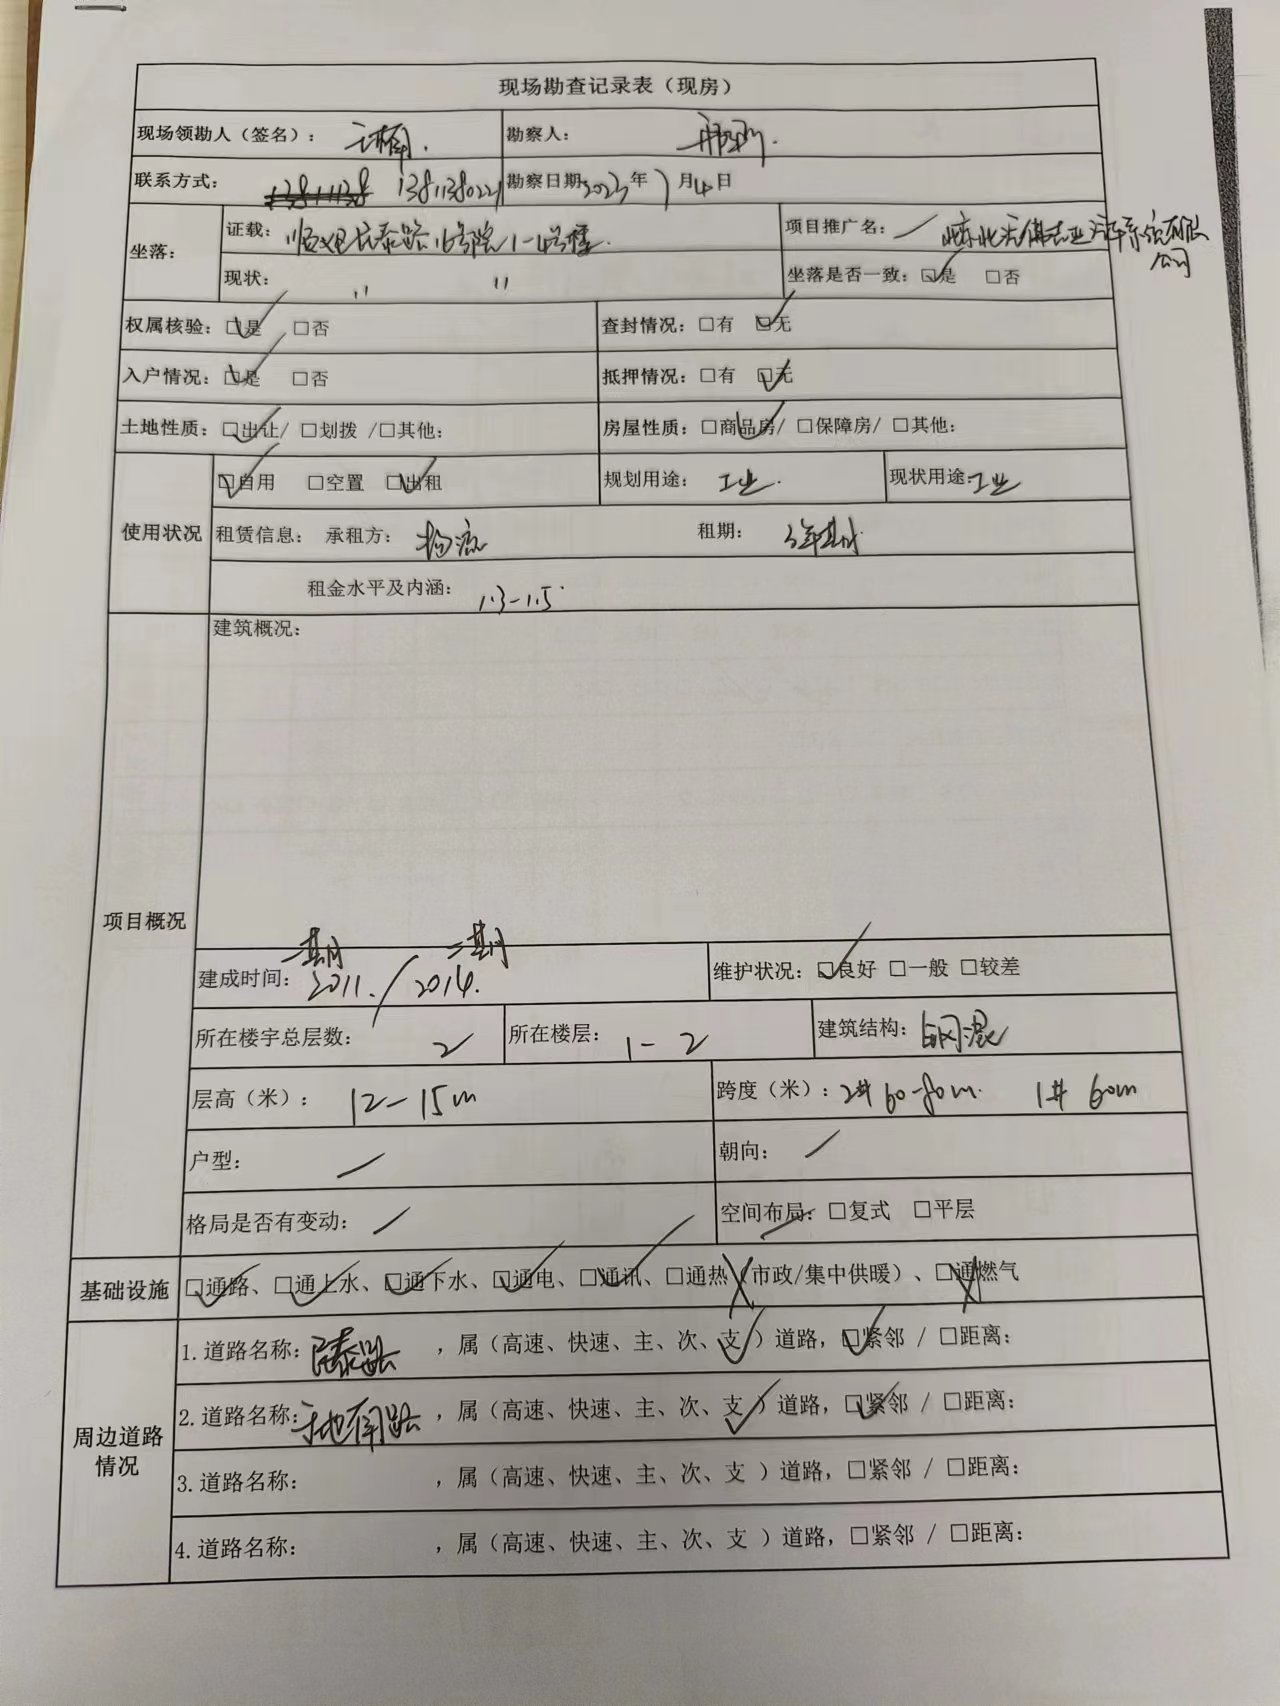 现场勘查记录表（现房）
现场领勘人（签名）： 勘察人：
联系方式： 13811380221 勘察日期：2023年7月4日
坐落： 证载：顺义区 泰路16号院1-4号楼 项目推广名：／ 有限公司
现状： 〃 〃 坐落是否一致：☑是 □否
权属核验：☑是 □否 查封情况：□有 ☑无
入户情况：☑是 □否 抵押情况：□有 ☑无
土地性质：☑出让/ □划拨 /□其他： 房屋性质：☑商品房/ □保障房/ □其他：
使用状况 ☑自用 □空置 ☑出租 规划用途：工业 现状用途：工业
租赁信息： 承租方：物流 租期：3年期
租金水平及内涵：1.3-1.5
项目概况 建筑概况：
一期 二期
建成时间：2011. / 2014. 维护状况：☑良好 □一般 □较差
所在楼宇总层数：2 所在楼层：1-2 建筑结构：钢混
层高（米）：12-15m 跨度（米）：2# 60-80m. 1# 60m
户型：／ 朝向：／
格局是否有变动：／ 空间布局：□复式 □平层
基础设施 ☑通路、☑通上水、☑通下水、☑通电、☑通讯、□通热（市政/集中供暖）、□通燃气
周边道路情况 1.道路名称： 泰路 ，属（高速、快速、主、次、支✓）道路，☑紧邻 / □距离：
2.道路名称： 南路 ，属（高速、快速、主、次、支✓）道路，☑紧邻 / □距离：
3.道路名称： ，属（高速、快速、主、次、支 ）道路，□紧邻 / □距离：
4.道路名称： ，属（高速、快速、主、次、支 ）道路，□紧邻 / □距离：